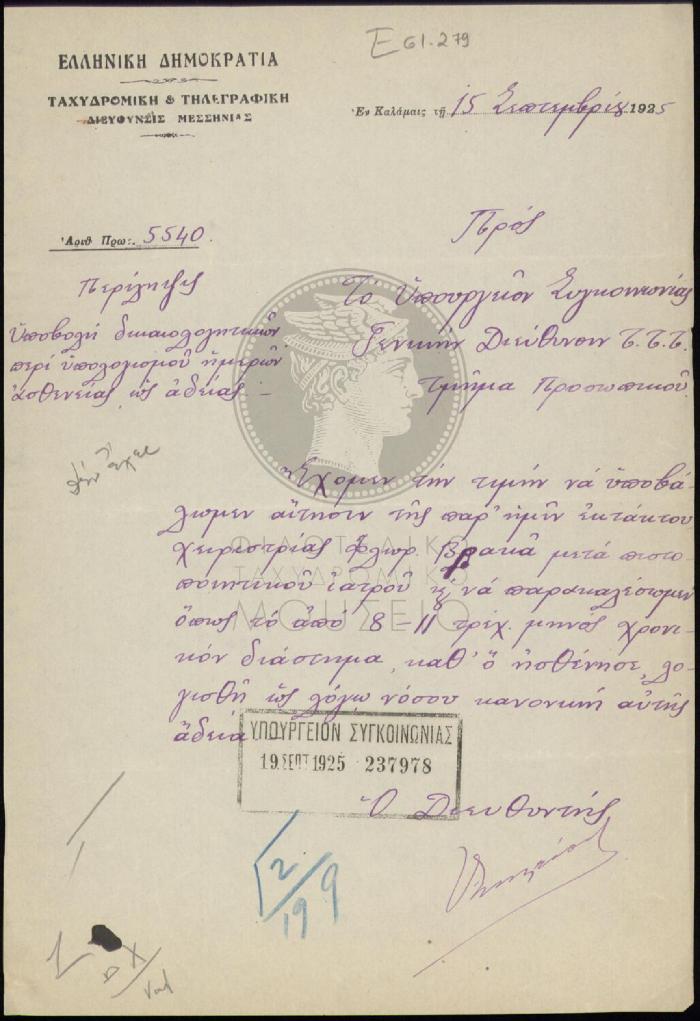 Ε 61.279
ΕΛΛΗΝΙΚΗ ΔΗΜΟΚΡΑΤΙΑ
ΤΑΧΥΔΡΟΜΙΚΗ & ΤΗΛΕΓΡΑΦΙΚΗ
ΔΙΕΥΘΥΝΣΙΣ ΜΕΣΣΗΝΙΑΣ
Ἐν Καλάμαις τῇ 15 Σεπτεμβρίου 1925
Ἀριθ Πρωτ. 5540.
Πρός
Τὸ Ὑπουργεῖον Συγκοινωνίας
Γενικὴν Διεύθυνσιν Τ.Τ.Τ.
Τμῆμα Προσωπικοῦ
Περίληψις
Ὑποβολὴ δικαιολογητικῶν
περὶ ὑπολογισμοῦ ἡμερῶν
ἀσθενείας ὡς ἀδείας.-
δὲν ἔχει
Ἔχομεν τὴν τιμὴν νὰ ὑποβά-
λωμεν αἴτησιν τῆς παρ' ἡμῖν ἐκτάκτου
χειριστρίας Φλωρ. Βρακᾶ μετὰ πιστο-
ποιητικοῦ ἰατροῦ κ νὰ παρακαλέσωμεν
ὅπως τὸ ἀπὸ 8-11 τρέχ. μηνὸς χρονι-
κὸν διάστημα, καθ' ὃ ἠσθένησε, λο-
γισθῇ ὡς λόγῳ νόσου κανονικὴ αὐτῆς
ἄδεια
ΥΠΟΥΡΓΕΙΟΝ ΣΥΓΚΟΙΝΩΝΙΑΣ
19 ΣΕΠΤ 1925 237978
Ὁ Διευθυντὴς
2/19 9
ΦΙΛΟΤΕΛΙΚΟ
ΤΑΧΥΔΡΟΜΙΚΟ
ΜΟΥΣΕΙΟ